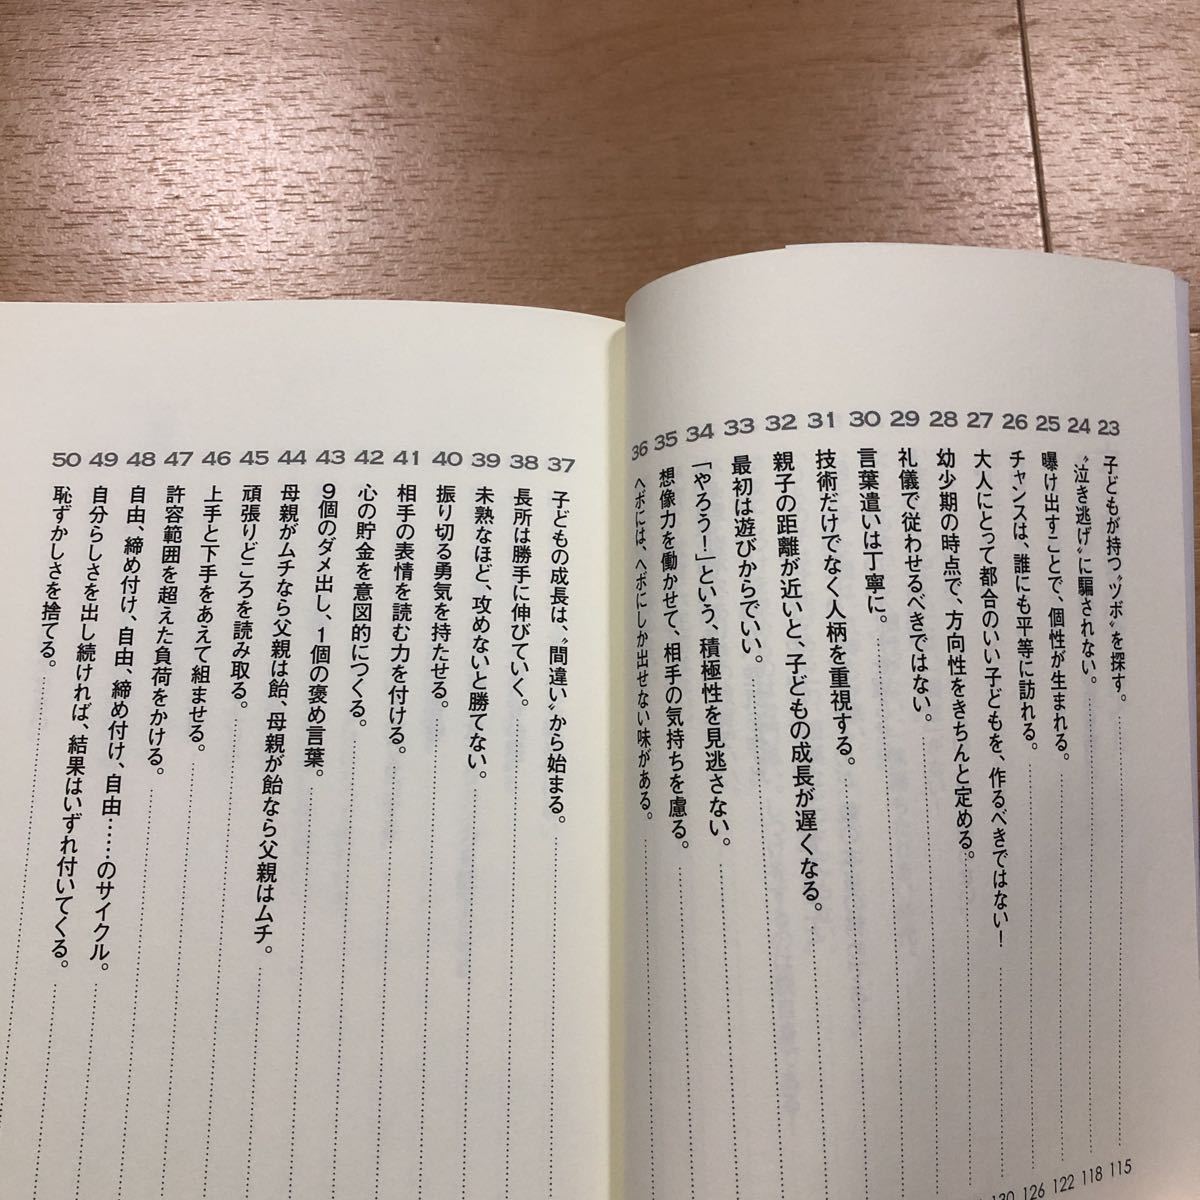 23 子どもが持つ〝ツボ〟を探す。 115
24 〝泣き逃げ〟に騙されない。 118
25 曝け出すことで、個性が生まれる。 122
26 チャンスは、誰にも平等に訪れる。 126
27 大人にとって都合のいい子どもを、作るべきではない！ 130
28 幼少期の時点で、方向性をきちんと定める。
29 礼儀で従わせるべきではない。
30 言葉遣いは丁寧に。
31 技術だけでなく人柄を重視する。
32 親子の距離が近いと、子どもの成長が遅くなる。
33 最初は遊びからでいい。
34 「やろう！」という、積極性を見逃さない。
35 想像力を働かせて、相手の気持ちを慮る。
36 ヘボには、ヘボにしか出せない味がある。
37 子どもの成長は、〝間違い〟から始まる。
38 長所は勝手に伸びていく。
39 未熟なほど、攻めないと勝てない。
40 振り切る勇気を持たせる。
41 相手の表情を読む力を付ける。
42 心の貯金を意図的につくる。
43 9個のダメ出し、1個の褒め言葉。
44 母親がムチなら父親は飴、母親が飴なら父親はムチ。
45 頑張りどころを読み取る。
46 上手と下手をあえて組ませる。
47 許容範囲を超えた負荷をかける。
48 自由、締め付け、自由、締め付け、自由……のサイクル。
49 自分らしさを出し続ければ、結果はいずれ付いてくる。
50 恥ずかしさを捨てる。